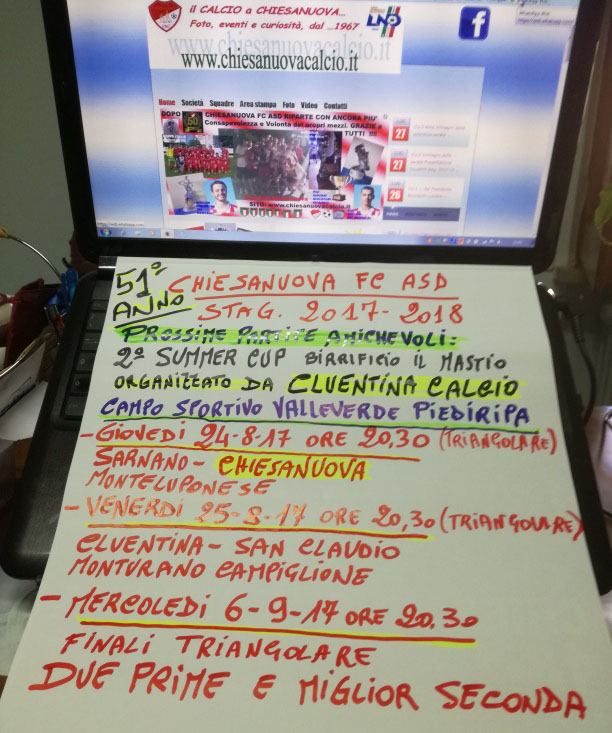 il CALCIO a CHIESANUOVA...
Foto, eventi e curiosità, dal ...1967
LND
f
www.chiesanuovacalcio.it
www.chiesanuovacalcio.it
Home Società Squadre Area stampa Foto Video Contatti
DOPO 50 CHIESANUOVA FC ASD RIPARTE CON ANCORA PIU'
Consapevolezza e Volontà dei propri mezzi. GRAZIE a
TUTTI !!!
27
27
26
SITO: www.chiesanuovacalcio.it
51° ANNO
CHIESANUOVA FC ASD
STAG. 2017-2018
PROSSIME PARTITE AMICHEVOLI:
2ª SUMMER CUP BIRRIFICIO IL MASTIO
ORGANIZZATO DA CLUENTINA CALCIO
CAMPO SPORTIVO VALLEVERDE PIEDIRIPA
- GIOVEDI 24-8-17 ORE 20,30 (TRIANGOLARE)
SARNANO - CHIESANUOVA
MONTELUPONESE
- VENERDI 25-8-17 ORE 20,30 (TRIANGOLARE)
CLUENTINA - SAN CLAUDIO
MONTURANO CAMPIGLIONE
- MERCOLEDI 6-9-17 ORE 20.30
FINALI TRIANGOLARE
DUE PRIME E MIGLIOR SECONDA